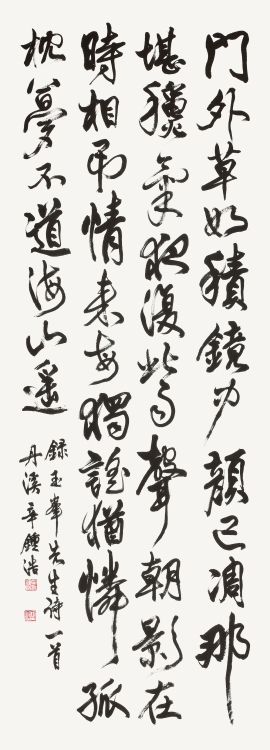 門外草如積鏡中顏已凋那
堪龝氣夜復此雨聲朝影在
時相弔情來每獨謠猶憐孤
枕夢不道海山遙
錄玉峯先生詩一首
丹溪辛鍾浩